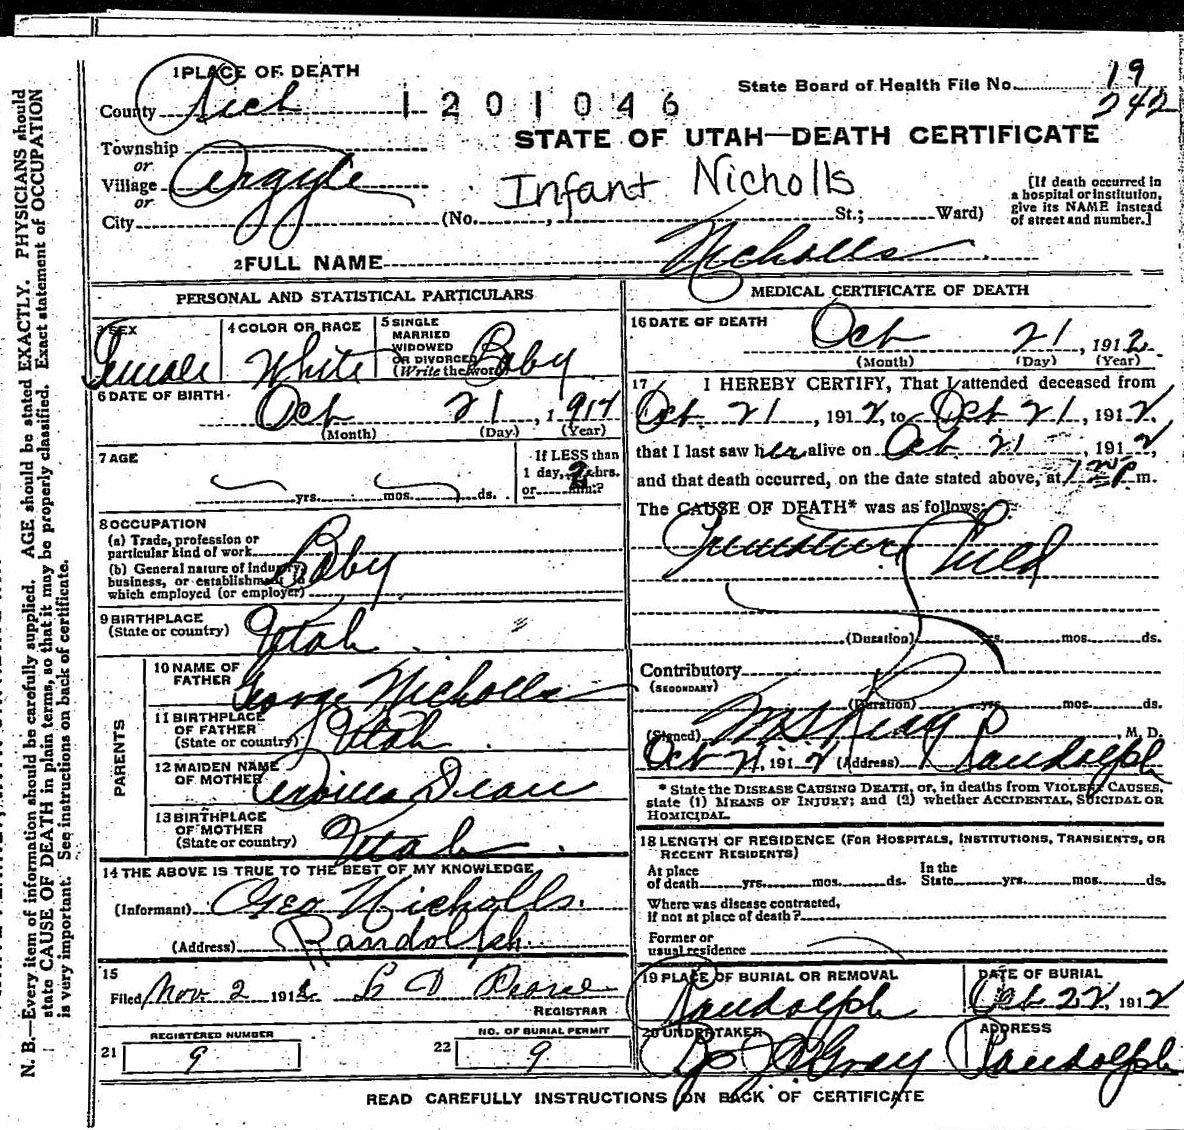 1 PLACE OF DEATH
County Rich 1201046
State Board of Health File No. 19
242
STATE OF UTAH—DEATH CERTIFICATE
Township
or
Village Argyle
or
City
Infant Nicholls
(No. , St.; Ward)
[If death occurred in
a hospital or institution,
give its NAME instead
of street and number.]
2 FULL NAME Nicholls
PERSONAL AND STATISTICAL PARTICULARS
3 SEX
Female
4 COLOR OR RACE
White
5 SINGLE
MARRIED
WIDOWED
OR DIVORCED
(Write the word)
Baby
6 DATE OF BIRTH
Oct 21, 1912
(Month) (Day) (Year)
7 AGE
yrs. mos. ds.
If LESS than
1 day, 2 hrs.
or min.?
8 OCCUPATION
(a) Trade, profession or
particular kind of work
(b) General nature of industry,
business, or establishment in
which employed (or employer)
Baby
9 BIRTHPLACE
(State or country)
Utah
PARENTS
10 NAME OF
FATHER
George Nicholls
11 BIRTHPLACE
OF FATHER
(State or country)
Utah
12 MAIDEN NAME
OF MOTHER
Dean
13 BIRTHPLACE
OF MOTHER
(State or country)
Utah
14 THE ABOVE IS TRUE TO THE BEST OF MY KNOWLEDGE
(Informant) Geo Nicholls.
(Address) Randolph.
15
Filed Nov. 2 1912
REGISTRAR
REGISTERED NUMBER
21 9
NO. OF BURIAL PERMIT
22 9
MEDICAL CERTIFICATE OF DEATH
16 DATE OF DEATH
Oct 21, 1912
(Month) (Day) (Year)
17 I HEREBY CERTIFY, That I attended deceased from
Oct 21, 1912, to Oct 21, 1912.
that I last saw her alive on Oct 21, 1912,
and that death occurred, on the date stated above, at m.
The CAUSE OF DEATH* was as follows:
Premature Child
(Duration) yrs. mos. ds.
Contributory
(SECONDARY)
(Duration) yrs. mos. ds.
(Signed) , M. D.
Oct 21, 1912 (Address) Randolph
* State the DISEASE CAUSING DEATH, or, in deaths from VIOLENT CAUSES,
state (1) MEANS OF INJURY; and (2) whether ACCIDENTAL, SUICIDAL OR
HOMICIDAL.
18 LENGTH OF RESIDENCE (FOR HOSPITALS, INSTITUTIONS, TRANSIENTS, OR
RECENT RESIDENTS)
At place
of death yrs. mos. ds.
In the
State yrs. mos. ds.
Where was disease contracted,
if not at place of death?
Former or
usual residence
19 PLACE OF BURIAL OR REMOVAL
Randolph
DATE OF BURIAL
Oct 22, 1912
20 UNDERTAKER
Gray
ADDRESS
Randolph
READ CAREFULLY INSTRUCTIONS ON BACK OF CERTIFICATE
N. B.—Every item of information should be carefully supplied. AGE should be stated EXACTLY. PHYSICIANS should
state CAUSE OF DEATH in plain terms, so that it may be properly classified. Exact statement of OCCUPATION
is very important. See instructions on back of certificate.